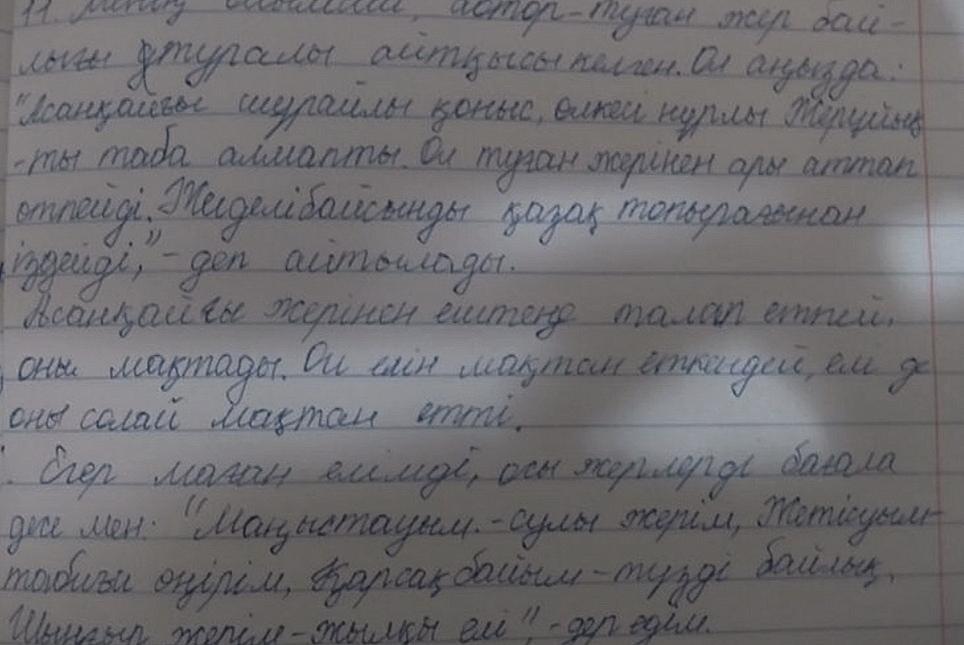 11. Менің ойымша, автор-туған жер бай-
лығы туралы айтқысы келген. Ол аңызда:
"Асанқайғы шұрайлы қоныс, өлкен нұрлы Жерұйық
-ты таба алмапты. Ол туған жерінен ары аттап
өтпейді. Жиделібайсынды қазақ топырағынан
іздейді", - деп айтылады.
Асанқайғы жерінен ештеңе талап етпей,
оны мақтады. Ол елін мақтан еткендей, ел де
оны солай мақтан етті.
Егер маған елімді, осы жерлерді бағала
десе мен: "Маңыстауым - сулы жерім, Жетісуым-
табиғи өңірім, Қарсақбайым - түзді байлық,
Шыңғыр жерім - жылқы елі", - дер едім.